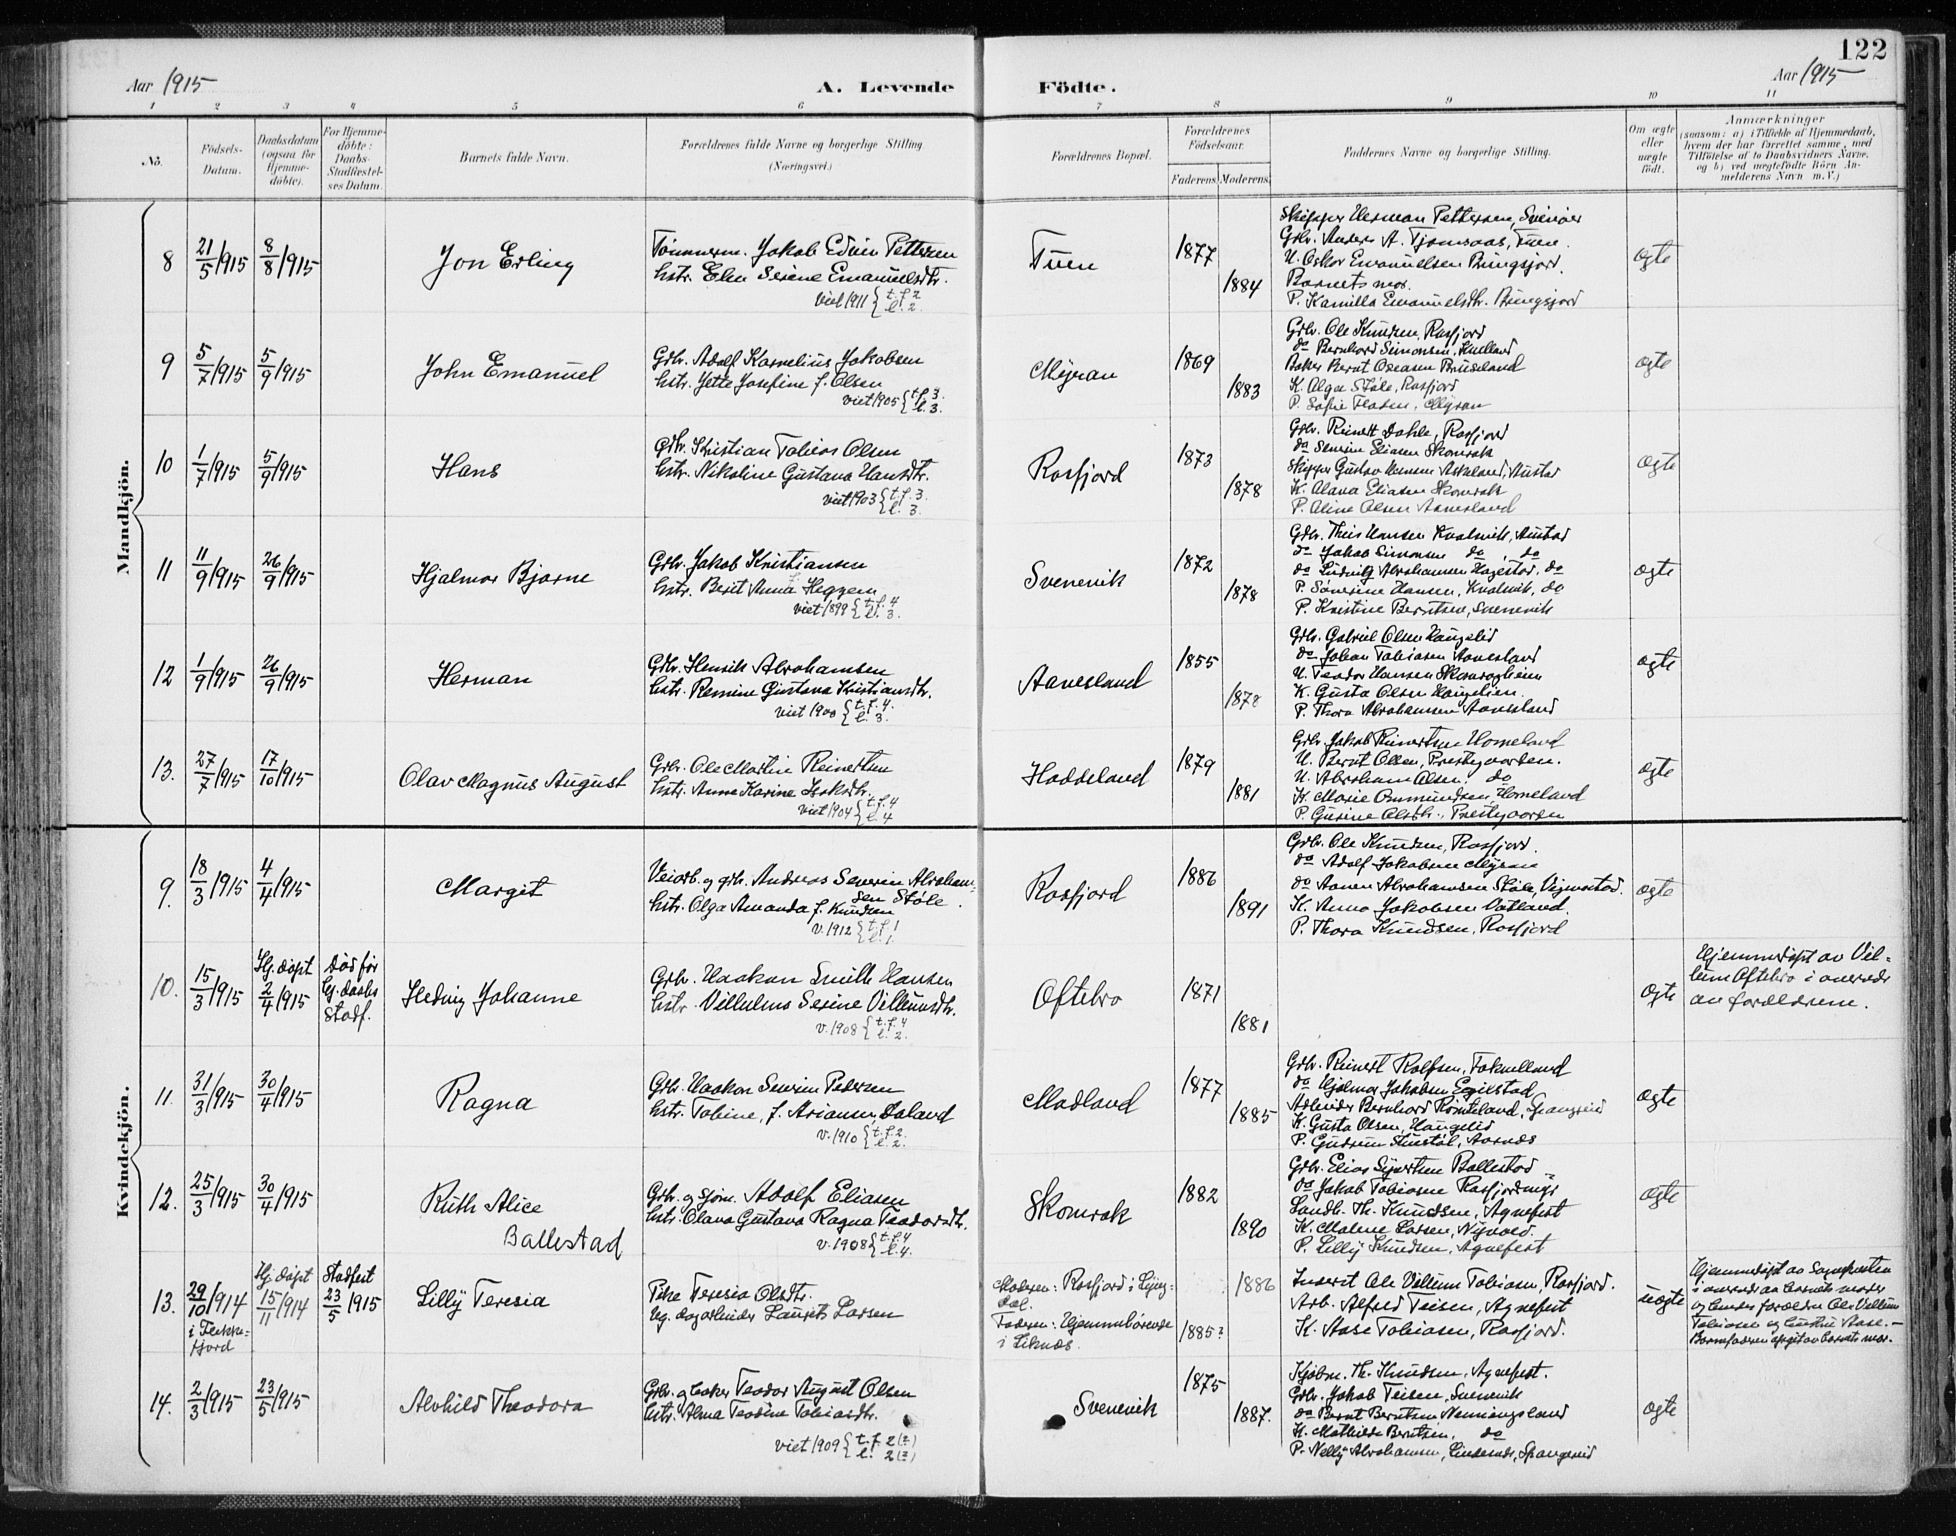 122
Aar 1915
A. Levende
Födte.
Aar 1915
1 2 3 4 5 6 7 8 9 10 11
No.
Födsels-
Datum.
Daabsdatum
(ogsaa for
Hjemme-
döbte).
For Hjemme-
döbte:
Daabs-
Stadfæstel-
ses Datum.
Barnets fulde Navn.
Forældrenes fulde Navne og borgerlige Stilling
(Næringsvei.)
Forældrenes Bopæl.
Forældrenes
Födselsaar.
Faderens
Moderens
Faddernes Navne og borgerlige Stilling.
Om ægte
eller
uægte
født.
Anmærkninger
(saasom: a) i Tilfælde af Hjemmedaab,
hvem der har forrettet samme, med
Tilføielse af to Daabsvidners Navne,
og b) ved uægtefødte Börn An-
melderens Navn m. V.)
Mandkjön.
8
21/5 1915
8/8 1915
Jon Erling
Tömmerm. Jakob Edvin Pettersen
hstr. Elen Serine Emanuelsdtr.
viet 1911 { t. f. 2
l. 2.
Tuen
1877
1884
Skipper Herman Pettersen, Svinøer
Grbr. Anders A. Tjomsaas, Tuen.
U. Oskar Emanuelsen Bringsjord.
Barnets mor.
P. Kamilla Emanuelsdtr. Bringsjord
ægte
9
5/7 1915
5/9 1915
John Emanuel
Grbr. Adolf Kornelius Jakobsen
hstr. Jette Josefine f. Olsen
viet 1905 { t. f. 3.
l. 3.
Myran
1869
1883
Grbr. Ole Knudsen, Rosfjord
do Bernhard Simonsen,
Baker Bernt Oseasen Bruseland
K. Olga Støle, Rosfjord
P. Sofie Floden, Myran
ægte
10
1/7 1915
5/9 1915
Hans
Grbr. Kristian Tobias Olsen
hstr. Nikoline Gustava Hansdtr.
viet 1903 { t. f. 3.
l. 3.
Rosfjord
1873
1878
Grbr. Reinert Dahle, Rosfjord
do Severin Eliasen Skomrak
Skipper Gustav Hansen Askeland, Austad
K. Olava Eliasen Skomrak
P. Aline Olsen Aanesland
ægte
11
11/9 1915
26/9 1915
Hjalmar Bjarne
Grbr. Jakob Kristiansen
hstr. Berit Anna Heggem
viet 1899 { t. f. 4
l. 3.
Svenevik
1872
1878
Grbr. Theis Hansen Kvalvik, Austad
do Jakob Simonsen do, do
do Ludvig Abrahamsen Hagestad, do
P. Sörine Hansen, Kvalvik, do
P. Kristine Berntsen, Svenevik
ægte
12
1/9 1915
26/9 1915
Herman
Grbr. Henrik Abrahamsen
hstr. Remine Gustava Kristiansdtr.
viet 1900 { t. f. 4.
l. 3.
Aanesland
1855
1878
Grbr. Gabriel Olsen Haugelid
do Johan Tobiasen Aanesland
U. Teodor Hansen Skomragheien
K. Gusta Olsen Haugelien.
P. Thora Abrahamsen Aanesland
ægte
13.
27/7 1915
17/10 1915
Olav Magnus August
Grbr. Ole Martin Reinertsen
hstr. Anna Karine Isaksdtr.
viet 1904 { t. f. 4
l. 4
Haddeland
1879
1881
Grbr. Jakob Reinertsen Homeland
U. Bernt Olsen, Prestegaarden.
U. Abraham Olsen, do
K. Marie Ommundsen Homeland
P. Gurine Olsdtr., Prestegaarden
ægte
Kvindekjön.
9.
18/3 1915
4/4 1915
Margit
Veiarb. og grbr. Andreas Severin Abraham-
sen Støle.
hstr. Olga Amanda f. Knudsen
v. 1912 { t. f. 1
l. 1.
Rosfjord
1886
1891
Grbr. Ole Knudsen, Rosfjord.
do Adolf Jakobsen Myran
do Aanen Abrahamsen Støle, Vigmostad.
K. Anna Jakobsen Vatland.
P. Thora Knudsen, Rosfjord
ægte
10.
15/3 1915
Hj. døpt
2/4 1915
Død før
hj. daabs
stadf.
Hedvig Johanne
Grbr. Haakon Smith Hansen
hstr. Vilhelma Serine Villumsdtr.
v. 1908 { t. f. 4
l. 2.
Oftebro
1871
1881
ægte
Hjemmedøpt av Vil-
lum Oftebro i overvær
av forældrene.
11.
31/3 1915
30/4 1915
Ragna
Grbr. Haakon Severin Pedersen
hstr. Tobine, f. Ariansen Daland
v. 1910 { t. f. 2.
l. 2.
Madland
1877
1885
Grbr. Reinert Rolfsen, Foknelland
do Hjalmar Jakobsen Egikstad
Arbeider Bernhard Rømteland, Spangereid
K. Gusta Olsen, Haugelid
P. Gudrun Stustøl, Aarnes
ægte
12.
25/3 1915
30/4 1915
Ruth Alice
Ballestad
Grbr. og sjøm. Adolf Eliasen
hstr. Olava Gustava Ragna Teodorsdtr.
v. 1908 { t. f. 4
l. 4.
Skomrak
1882
1890
Grbr. Elias Syvertsen Ballestad
do Jakob Tobiasen Rosfjord
Landh. Th. Knudsen, Agnefest
K. Malene Larsen, Nyvold.
P. Lilly Knudsen, Agnefest
ægte
13.
29/10 1914
i Flekke-
fjord
Hj. døpt
15/11 1914
Stadfest
23/5 1915
Lilly Teresia
Pike Teresia Olsdtr.
Ug. dagarbeider Laurits Larsen
Moderen: Rosfjord i Lyng-
dal.
Faderen: Hjemmehørende
i Liknæs.
1885?
1886
Inderst Ole Villum Tobiasen, Rosfjord.
Arb. Alfred Teisen, Agnefest
K. Aase Tobiasen, Rosfjord.
uægte
Hjemmedøpt av Sognepresten
i overvær av barnets moder
og hendes forældre Ole Villum
Tobiasen og hustru Aase. -
Barnefaderen opgit av barnets mor.
14.
2/3 1915
23/5 1915
Alvhild Theodora
Grbr. og baker Teodor August Olsen
hstr. Alma Teodine Tobiasdtr.
viet 1909 { t. f. 2 (?)
l. 2 (?)
Svenevik
1875
1887.
Kjøbm. Th. Knudsen, Agnefest.
Grbr. Jakob Teisen, Svenevik
do Bernt Berntsen Vemmingsland
K. Mathilde Berntsen, do
P. Nelly Abrahamsen, Lindesnæs, Spangereid
ægte